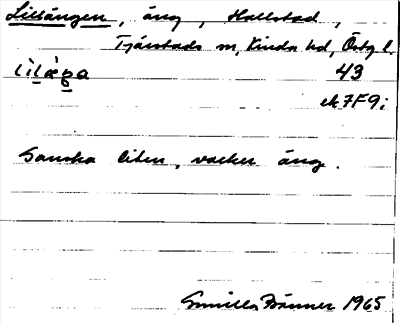 Lillängen, äng, Hallstad,
Tjärstads sn, Kinda hd, Östg l.
lìlæ̀ŋa 43
ek 7F9i
Ganska liten, vacker äng.
Gunilla Fränner 1965